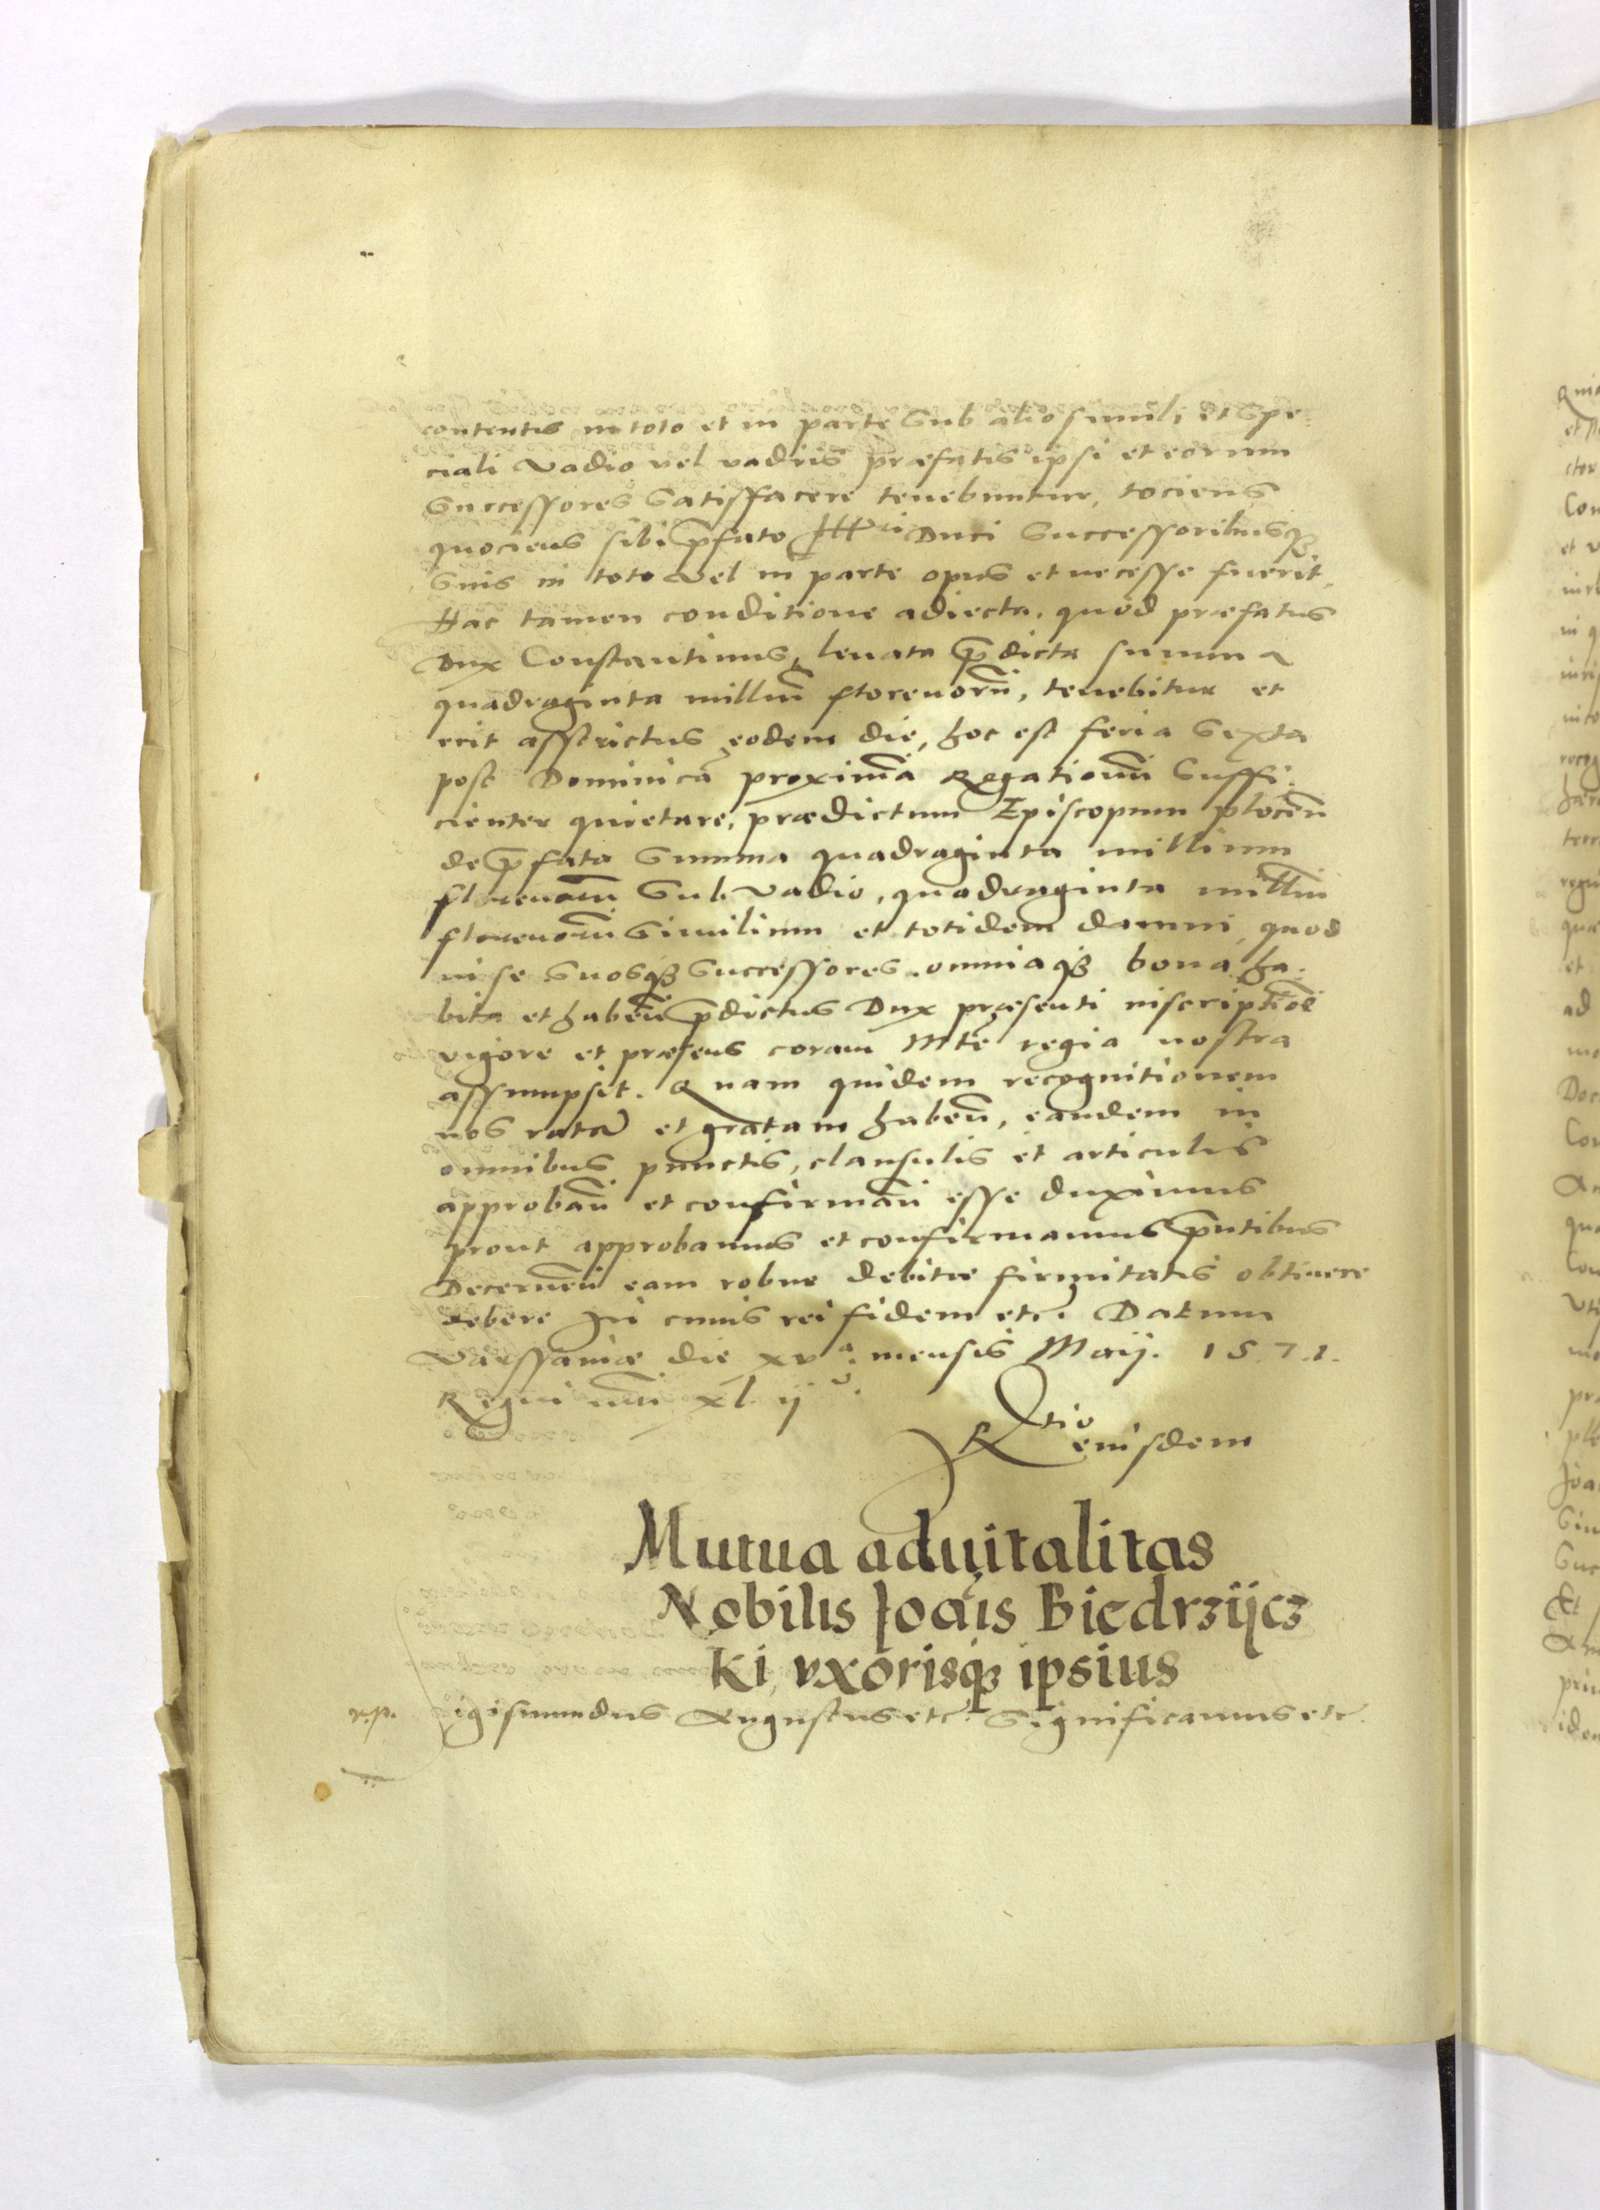 contentis in toto et in parte sub alio simili et spe=
ciali vadio vel vadiis præfatis ipsi et eorum
successores satisfacere tenebuntur, tociens
quociens sibi p̄fato Duci successoribusq3
suis in toto vel in parte opus et necesse fuerit.
Hac tamen conditione adiecta, quod præfatus
Dux Constantinus, levata p̄dicta summa
quadraginta milliū florenorū, tenebitur et
erit asstrictus eodem die, hoc est feria sexta
post Dominicā proximā Rogationū suffi:
cienter quietare, prædictum Episcopum plocēn
de p̄fata summa quadraginta millium
florenorū sub vadio, quadraginta milliū
florenorū similium et totidem damni, quod
in se suosq3 successores omniaq3 bona ha:
bita et habēn p̄dictus Dux præsenti inscriptiōe
vigore et præsens coram Mte regia nostra
assumpsit. Quam quidem recognitionem
nos ratā et gratam habēn, eandem in
omnibus punctis, clausulis et articulis
approbān et confirmān esse duximus
prout approbamus et confirmamus p̄ntibus
Decernēn eam robur debitæ firmitatis obtinere
debere In cuius rei fidem etc. Datum
Varssaviæ die xva. mensis Maij. 1571.
Regni nr̄i xl ij°.
Rtio eiusdem
Mutua advitalitas
Nobilis Joāis Biedrzijcz
ki, vxorisq3 ipsius
igismundus Augustus etc. Significamus etc.